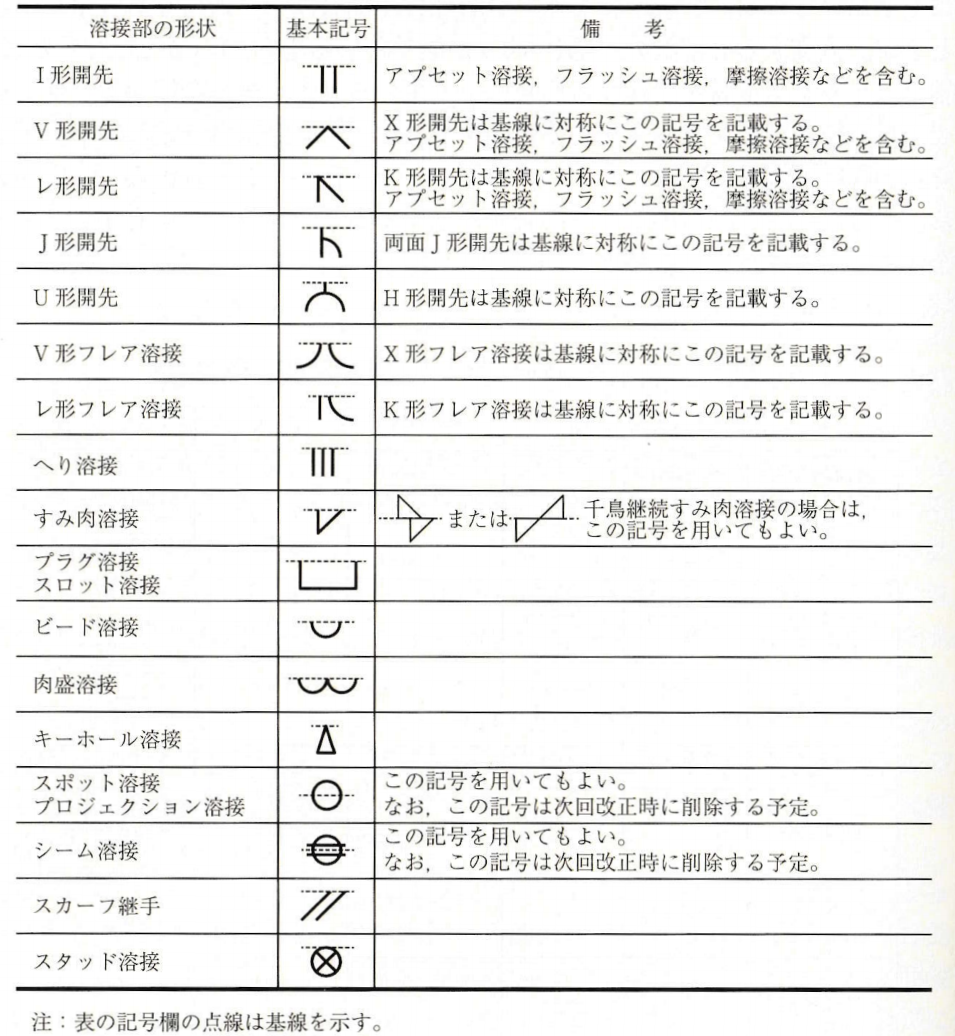 溶接部の形状 基本記号 備 考
I形開先 アプセット溶接,フラッシュ溶接,摩擦溶接などを含む。
V形開先 X形開先は基線に対称にこの記号を記載する。
アプセット溶接,フラッシュ溶接,摩擦溶接などを含む。
レ形開先 K形開先は基線に対称にこの記号を記載する。
アプセット溶接,フラッシュ溶接,摩擦溶接などを含む。
J形開先 両面J形開先は基線に対称にこの記号を記載する。
U形開先 H形開先は基線に対称にこの記号を記載する。
V形フレア溶接 X形フレア溶接は基線に対称にこの記号を記載する。
レ形フレア溶接 K形フレア溶接は基線に対称にこの記号を記載する。
へり溶接
すみ肉溶接 または 千鳥継続すみ肉溶接の場合は,
この記号を用いてもよい。
プラグ溶接
スロット溶接
ビード溶接
肉盛溶接
キーホール溶接
スポット溶接 この記号を用いてもよい。
プロジェクション溶接 なお,この記号は次回改正時に削除する予定。
シーム溶接 この記号を用いてもよい。
なお,この記号は次回改正時に削除する予定。
スカーフ継手
スタッド溶接
注:表の記号欄の点線は基線を示す。